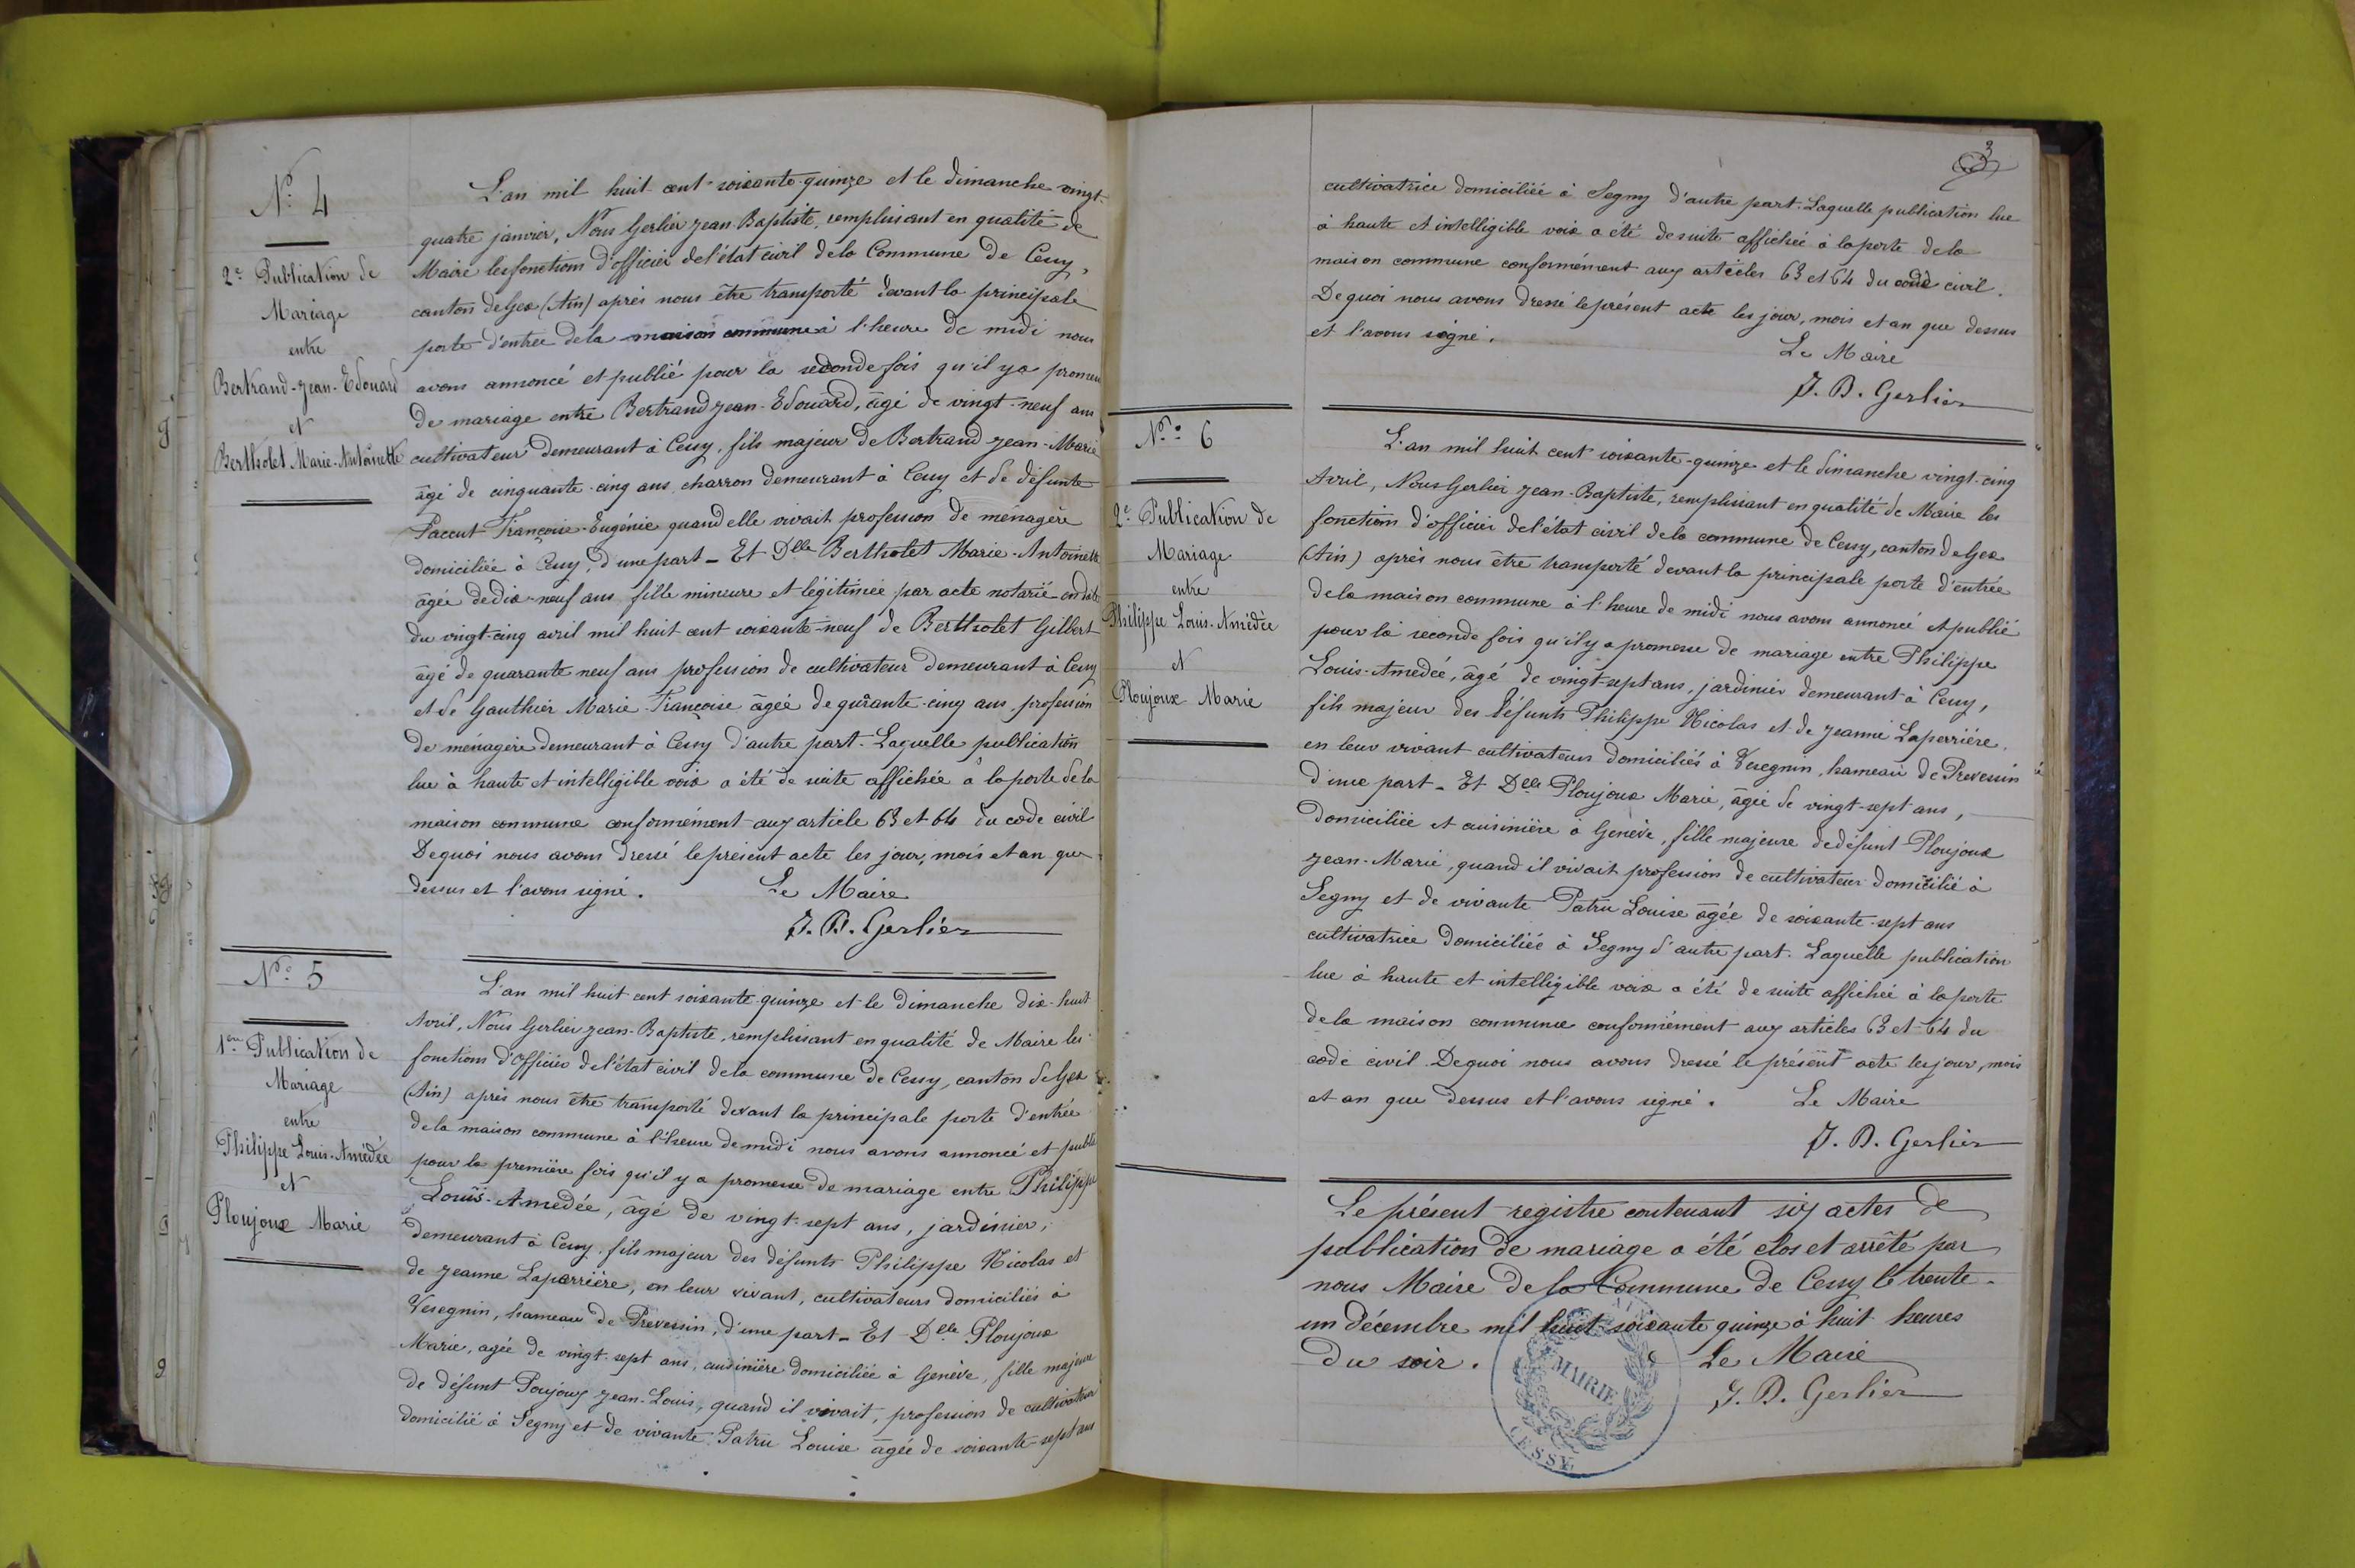 N° 4
2e Publication de
Mariage
entre
Bertrand-Jean-Edouard
et
Bertholet Marie-Antoinette
L'an mil huit cent soixante-quinze et le dimanche vingt-
quatre janvier, Nous Gerlier Jean Baptiste, remplissant en qualité de
Maire les fonctions d'officier de l'état civil de la Commune de Cessy,
canton de Gex (Ain) après nous être transporté devant la principale
porte d'entrée de la maison commune à l'heure de midi nous
avons annoncé et publié pour la seconde fois qu'il y a promesse
de mariage entre Bertrand Jean-Edouard, âgé de vingt-neuf ans
cultivateur demeurant à Cessy, fils majeur de Bertrand Jean-Marie
âgé de cinquante-cinq ans charron demeurant à Cessy et de défunte
Paccut Françoise-Eugénie quand elle vivait profession de ménagère
domiciliée à Cessy, d'une part - Et Dlle Bertholet Marie-Antoinette
âgée de dix-neuf ans fille mineure et légitimée par acte notarié en date
du vingt-cinq avril mil huit cent soixante-neuf de Bertholet Gilbert
âgé de quarante neuf ans profession de cultivateur demeurant à Cessy
et de Gauthier Marie-Françoise âgée de qurante-cinq ans, profession
de ménagère demeurant à Cessy d'autre part. Laquelle publication
lue à haute et intelligible voix a été de suite affichée à la porte de la
maison commune conformément aux article 63 et 64 du code civil
De quoi nous avons dressé le présent acte les jour, mois et an que
dessus et l'avons signé. Le Maire
J. B. Gerlier
N° 5
1ère Publication de
Mariage
entre
Philippe Louis-Amédée
et
Ploujoux Marie
L'an mil huit cent soixante-quinze et le dimanche dix-huit
Avril, Nous Gerlier Jean-Baptiste, remplissant en qualité de Maire les
fonctions d'Officier de l'état civil de la commune de Cessy, canton de Gex
(Ain) après nous être transporté devant la principale porte d'entrée
de la maison commune à l'heure de midi nous avons annoncé et publié
pour la première fois qu'il y a promesse de mariage entre Philippe
Louis-Amedée, âgé de vingt-sept ans, jardinier,
demeurant à Cessy, fils majeur des défunts Philippe Nicolas et
de Jeanne Laperrière, en leur vivant, cultivateurs domiciliés à
Vesegnin, hameau de Prevessin, d'une part - Et Dlle Ploujoux
Marie, agée de vingt-sept ans, cuisinière domiciliée à Genève, fille majeure
de défunt Poujoux Jean-Louis, quand il vivait, profession de cultivateur
domicilié à Segny et de vivante Patru Louise âgée de soixante-sept ans
3
cultivatrice domiciliée à Segny d'autre part. Laquelle publication lue
à haute et intelligible voix a été de suite affichée à la porte de la
maison commune conformément aux articles 63 et 64 du code civil.
De quoi nous avons dressé le présent acte les jour, mois et an que dessus
et l'avons signé.
Le Maire
J. B. Gerlier
N° 6
2e Publication de
Mariage
entre
Philippe Louis-Amédée
et
Ploujoux Marie
L'an mil huit cent soixante-quinze et le dimanche vingt-cinq
Avril, Nous Gerlier Jean-Baptiste, remplissant en qualité de Maire les
fonctions d'officier de l'état civil de la commune de Cessy, canton de Gex
(Ain) après nous être transporté devant la principale porte d'entrée
de la maison commune à l'heure de midi nous avons annoncé et publié
pour la seconde fois qu'il y a promesse de mariage entre Philippe
Louis-Amedée, âgé de vingt-sept ans, jardinier demeurant à Cessy,
fils majeur des défunts Philippe Nicolas et de Jeanne Laperrière,
en leur vivant cultivateurs domiciliés à Vesegnin, hameau de Prevessin
d'une part - Et Dlle Ploujoux Marie, âgée de vingt-sept ans,
domiciliée et cuisinière à Genève, fille majeure de défunt Ploujoux
Jean-Marie, quand il vivait profession de cultivateur domicilié à
Segny et de vivante Patru Louise âgée de soixante-sept ans
cultivatrice domiciliée à Segny d'autre part. Laquelle publication
lue à haute et intelligible voix a été de suite affichée à la porte
de la maison commune conformément aux articles 63 et 64 du
code civil. De quoi nous avons dressé le présent acte les jour, mois
et an que dessus et l'avons signé. Le Maire
J. B. Gerlier
Le présent registre contenant six actes de
publication de mariage a été clos et arrêté par
nous Maire de la Commune de Cessy le trente-
un décembre mil huit soixante quinze à huit heures
du soir. Le Maire
J. B. Gerlier
MAIRIE
CESSY
AIN